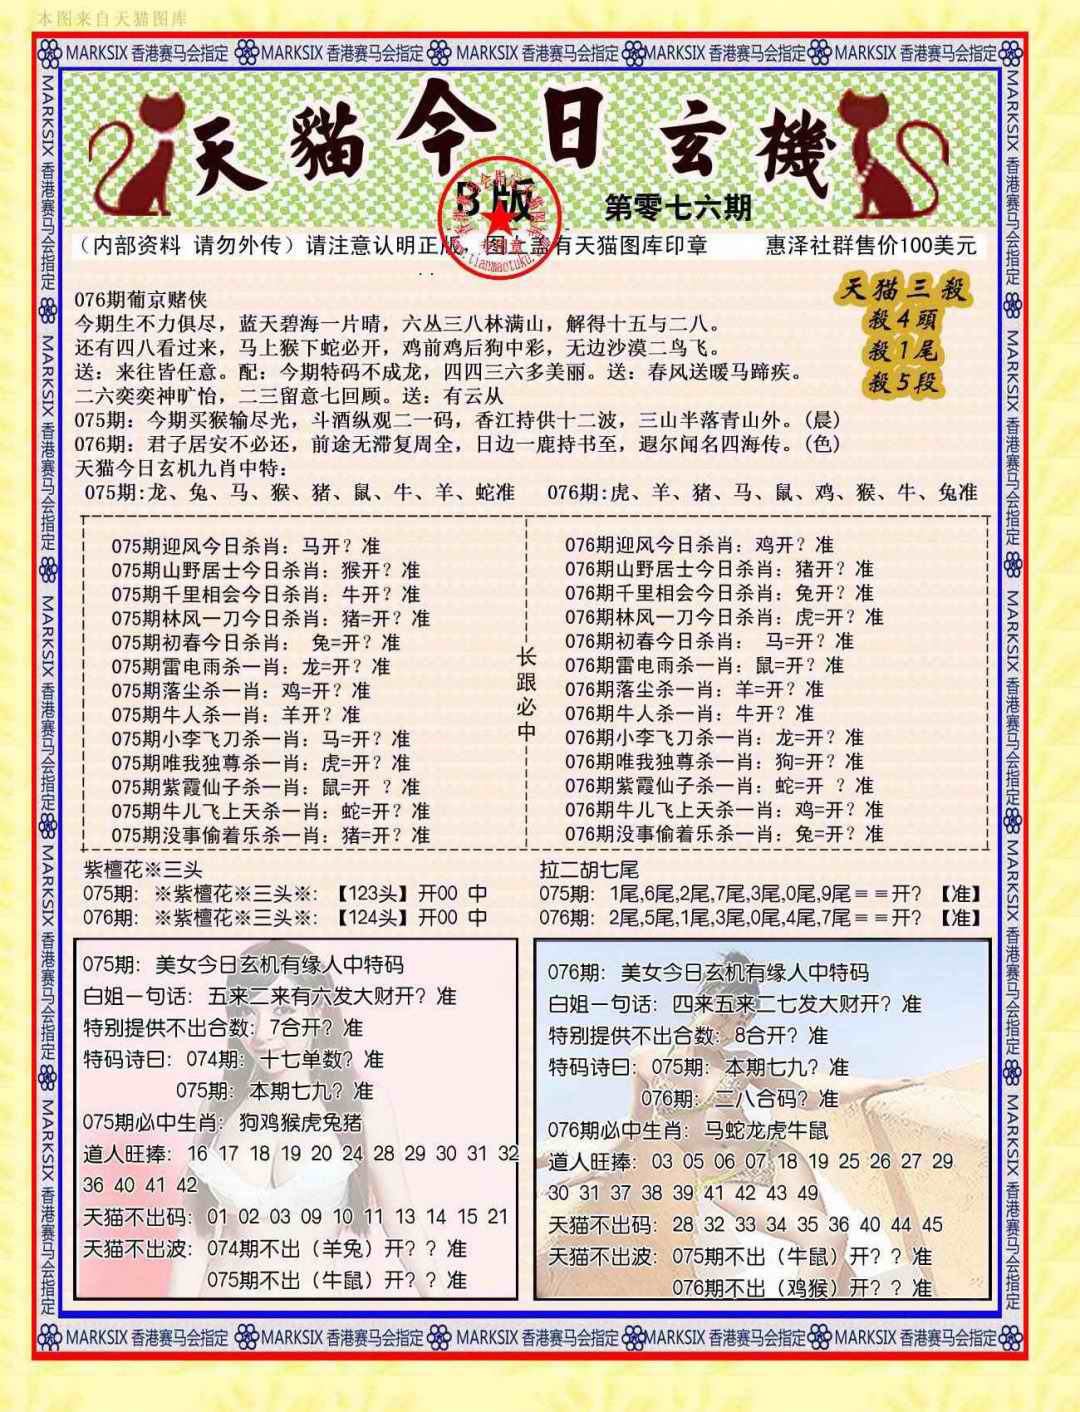 本图来自天猫图库
MARKSIX 香港赛马会指定 MARKSIX 香港赛马会指定 MARKSIX 香港赛马会指定 MARKSIX 香港赛马会指定 MARKSIX 香港赛马会指定
天貓今日玄機
B版
第零七六期
（内部资料 请勿外传）请注意认明正版，图上盖有天猫图库印章 惠泽社群售价100美元
天猫三殺
殺4頭
殺1尾
殺5段
076期葡京赌侠
今期生不力俱尽，蓝天碧海一片晴，六丛三八林满山，解得十五与二八。
还有四八看过来，马上猴下蛇必开，鸡前鸡后狗中彩，无边沙漠二鸟飞。
送：来往皆任意。配：今期特码不成龙，四四三六多美丽。送：春风送暖马蹄疾。
二六奕奕神旷怡，二三留意七回顾。送：有云从
075期：今期买猴输尽光，斗酒纵观二一码，香江持供十二波，三山半落青山外。(晨)
076期：君子居安不必还，前途无滞复周全，日边一鹿持书至，遐尔闻名四海传。(色)
天猫今日玄机九肖中特：
075期:龙、兔、马、猴、猪、鼠、牛、羊、蛇准 076期:虎、羊、猪、马、鼠、鸡、猴、牛、兔准
075期迎风今日杀肖：马开？准
075期山野居士今日杀肖：猴开？准
075期千里相会今日杀肖：牛开？准
075期林风一刀今日杀肖：猪=开？准
075期初春今日杀肖： 兔=开？准
075期雷电雨杀一肖：龙=开？准
075期落尘杀一肖：鸡=开？准
075期牛人杀一肖：羊开？准
075期小李飞刀杀一肖：马=开？准
075期唯我独尊杀一肖：虎=开？准
075期紫霞仙子杀一肖：鼠=开 ？准
075期牛儿飞上天杀一肖：蛇=开？准
075期没事偷着乐杀一肖：猪=开？准
长跟必中
076期迎风今日杀肖：鸡开？准
076期山野居士今日杀肖：猪开？准
076期千里相会今日杀肖：兔开？准
076期林风一刀今日杀肖：虎=开？准
076期初春今日杀肖： 马=开？准
076期雷电雨杀一肖：鼠=开？准
076期落尘杀一肖：羊=开？准
076期牛人杀一肖：牛开？准
076期小李飞刀杀一肖：龙=开？准
076期唯我独尊杀一肖：狗=开？准
076期紫霞仙子杀一肖：蛇=开 ？准
076期牛儿飞上天杀一肖：鸡=开？准
076期没事偷着乐杀一肖：兔=开？准
紫檀花※三头
075期：※紫檀花※三头※：【123头】开00 中
076期：※紫檀花※三头※：【124头】开00 中
拉二胡七尾
075期：1尾,6尾,2尾,7尾,3尾,0尾,9尾＝＝开？【准】
076期：2尾,5尾,1尾,3尾,0尾,4尾,7尾＝＝开？【准】
075期：美女今日玄机有缘人中特码
白姐一句话：五来二来有六发大财开？准
特别提供不出合数：7合开？准
特码诗曰：074期：十七单数？准
075期：本期七九？准
075期必中生肖：狗鸡猴虎兔猪
道人旺捧：16 17 18 19 20 24 28 29 30 31 32
36 40 41 42
天猫不出码：01 02 03 09 10 11 13 14 15 21
天猫不出波：074期不出（羊兔）开？？准
075期不出（牛鼠）开？？准
076期：美女今日玄机有缘人中特码
白姐一句话：四来五来二七发大财开？准
特别提供不出合数：8合开？准
特码诗曰：075期：本期七九？准
076期：二八合码？准
076期必中生肖：马蛇龙虎牛鼠
道人旺捧：03 05 06 07 18 19 25 26 27 29
30 31 37 38 39 41 42 43 49
天猫不出码：28 32 33 34 35 36 40 44 45
天猫不出波：075期不出（牛鼠）开？？准
076期不出（鸡猴）开？？准
MARKSIX 香港赛马会指定 MARKSIX 香港赛马会指定 MARKSIX 香港赛马会指定 MARKSIX 香港赛马会指定 MARKSIX 香港赛马会指定
MARKSIX 香港赛马会指定 MARKSIX 香港赛马会指定 MARKSIX 香港赛马会指定 MARKSIX 香港赛马会指定 MARKSIX 香港赛马会指定
MARKSIX 香港赛马会指定 MARKSIX 香港赛马会指定 MARKSIX 香港赛马会指定 MARKSIX 香港赛马会指定 MARKSIX 香港赛马会指定